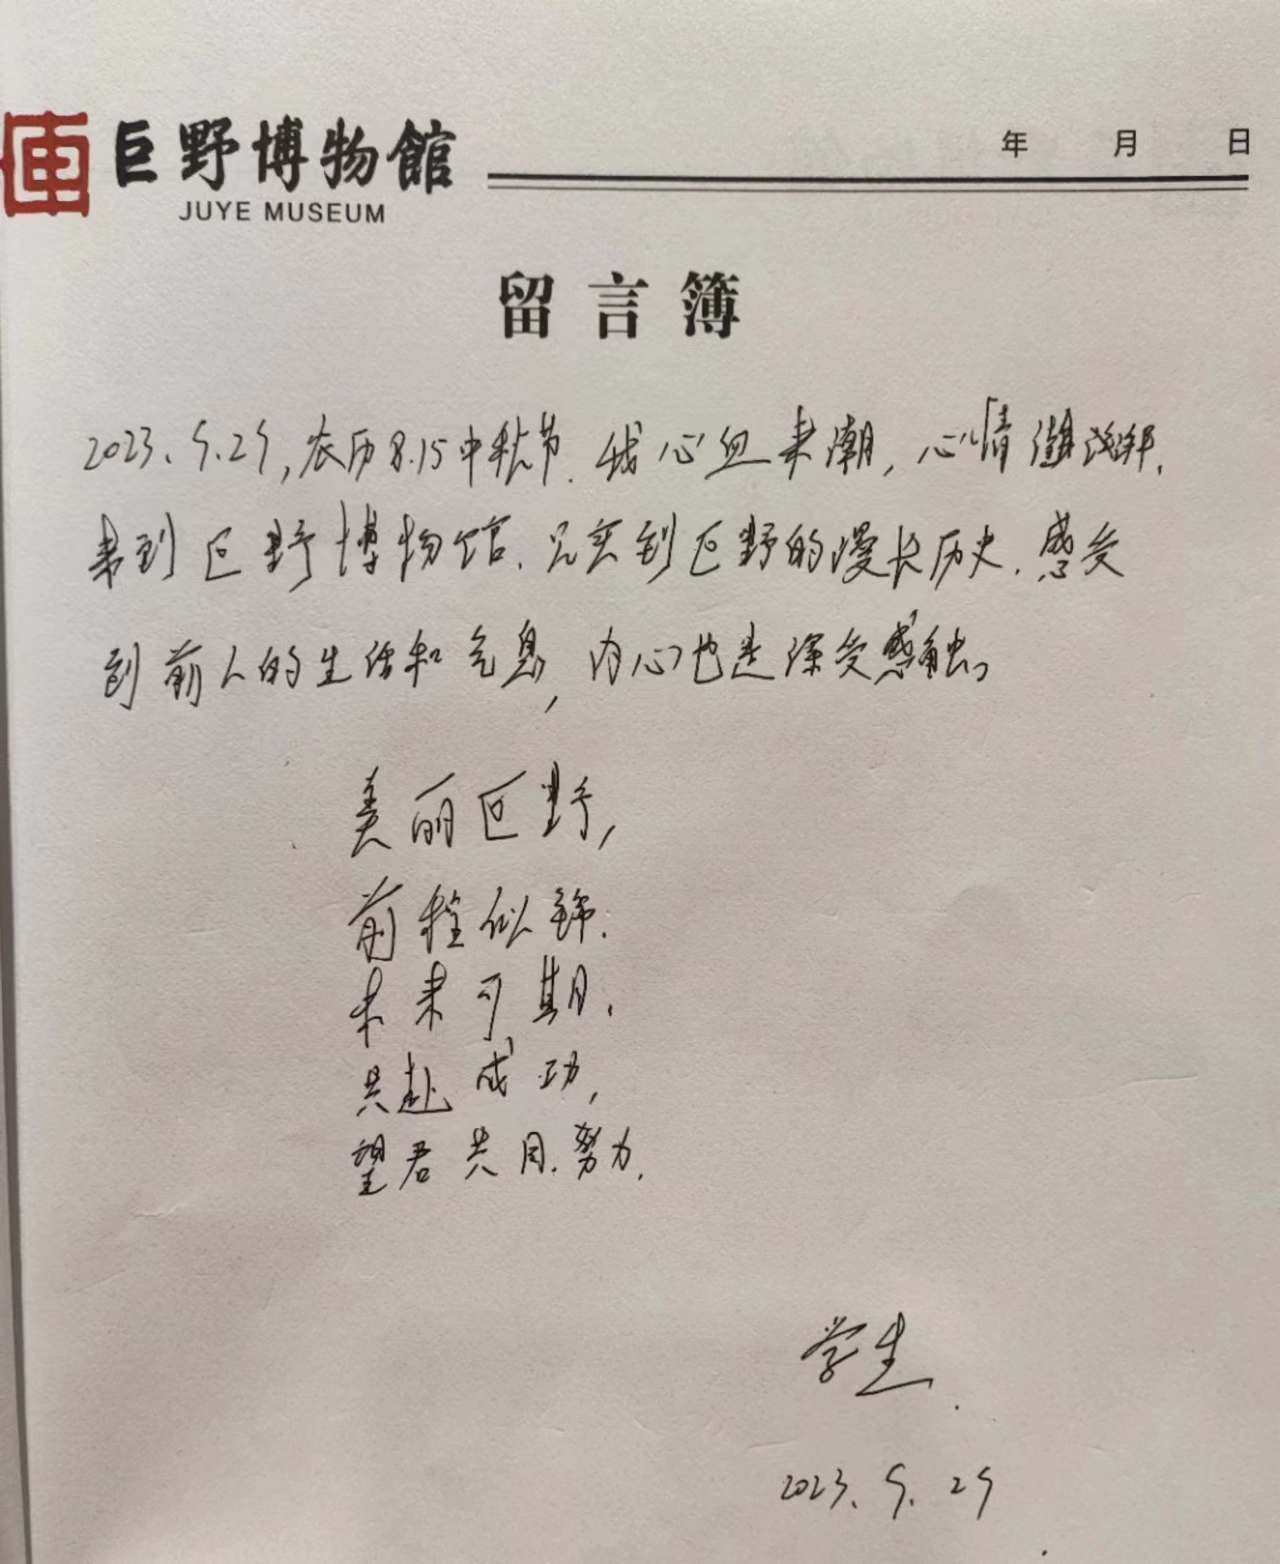 巨野博物館
JUYE MUSEUM
年 月 日
留言簿
2023.9.29,农历8.15中秋节.我心血来潮,心情澎湃.
来到巨野博物馆.见到巨野的漫长历史.感受
到前人的生活和气息,内心也是深受感触。
美丽巨野,
前程似锦.
未来可期.
共赴成功,
望君共同努力.
学生.
2023.9.29